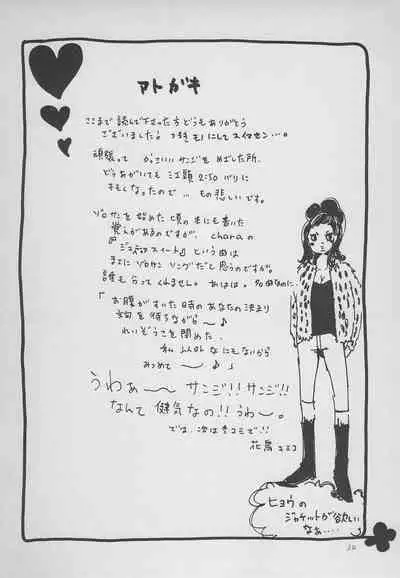 アトガキ
ここまで読んで下さった方どうもありがとう
ございました。
頑張って かっこいいサンジをめざした所、
どうあがいても 2:50 バリに
なったので … もの悲しいです。
ゾロサンを始めた頃の本にも書いた
覚えがあるのですが、charaの
スイート』という曲は
まさにゾロサンソングだと思うのですが。
誰も らってくれません。 あはは。 名曲なのに
「お腹がすいた時のあなたの決まり
文句を待ちながら〜♪
れいぞうこを閉めた
なにもないから
みつめて 〜♪」
うわぁ〜〜 サンジ!! サンジ!!
なんて 健気なの!! うわ〜。
では、次は冬コミで!!
ヒョウの
ジャケットが欲しい
なぁ……